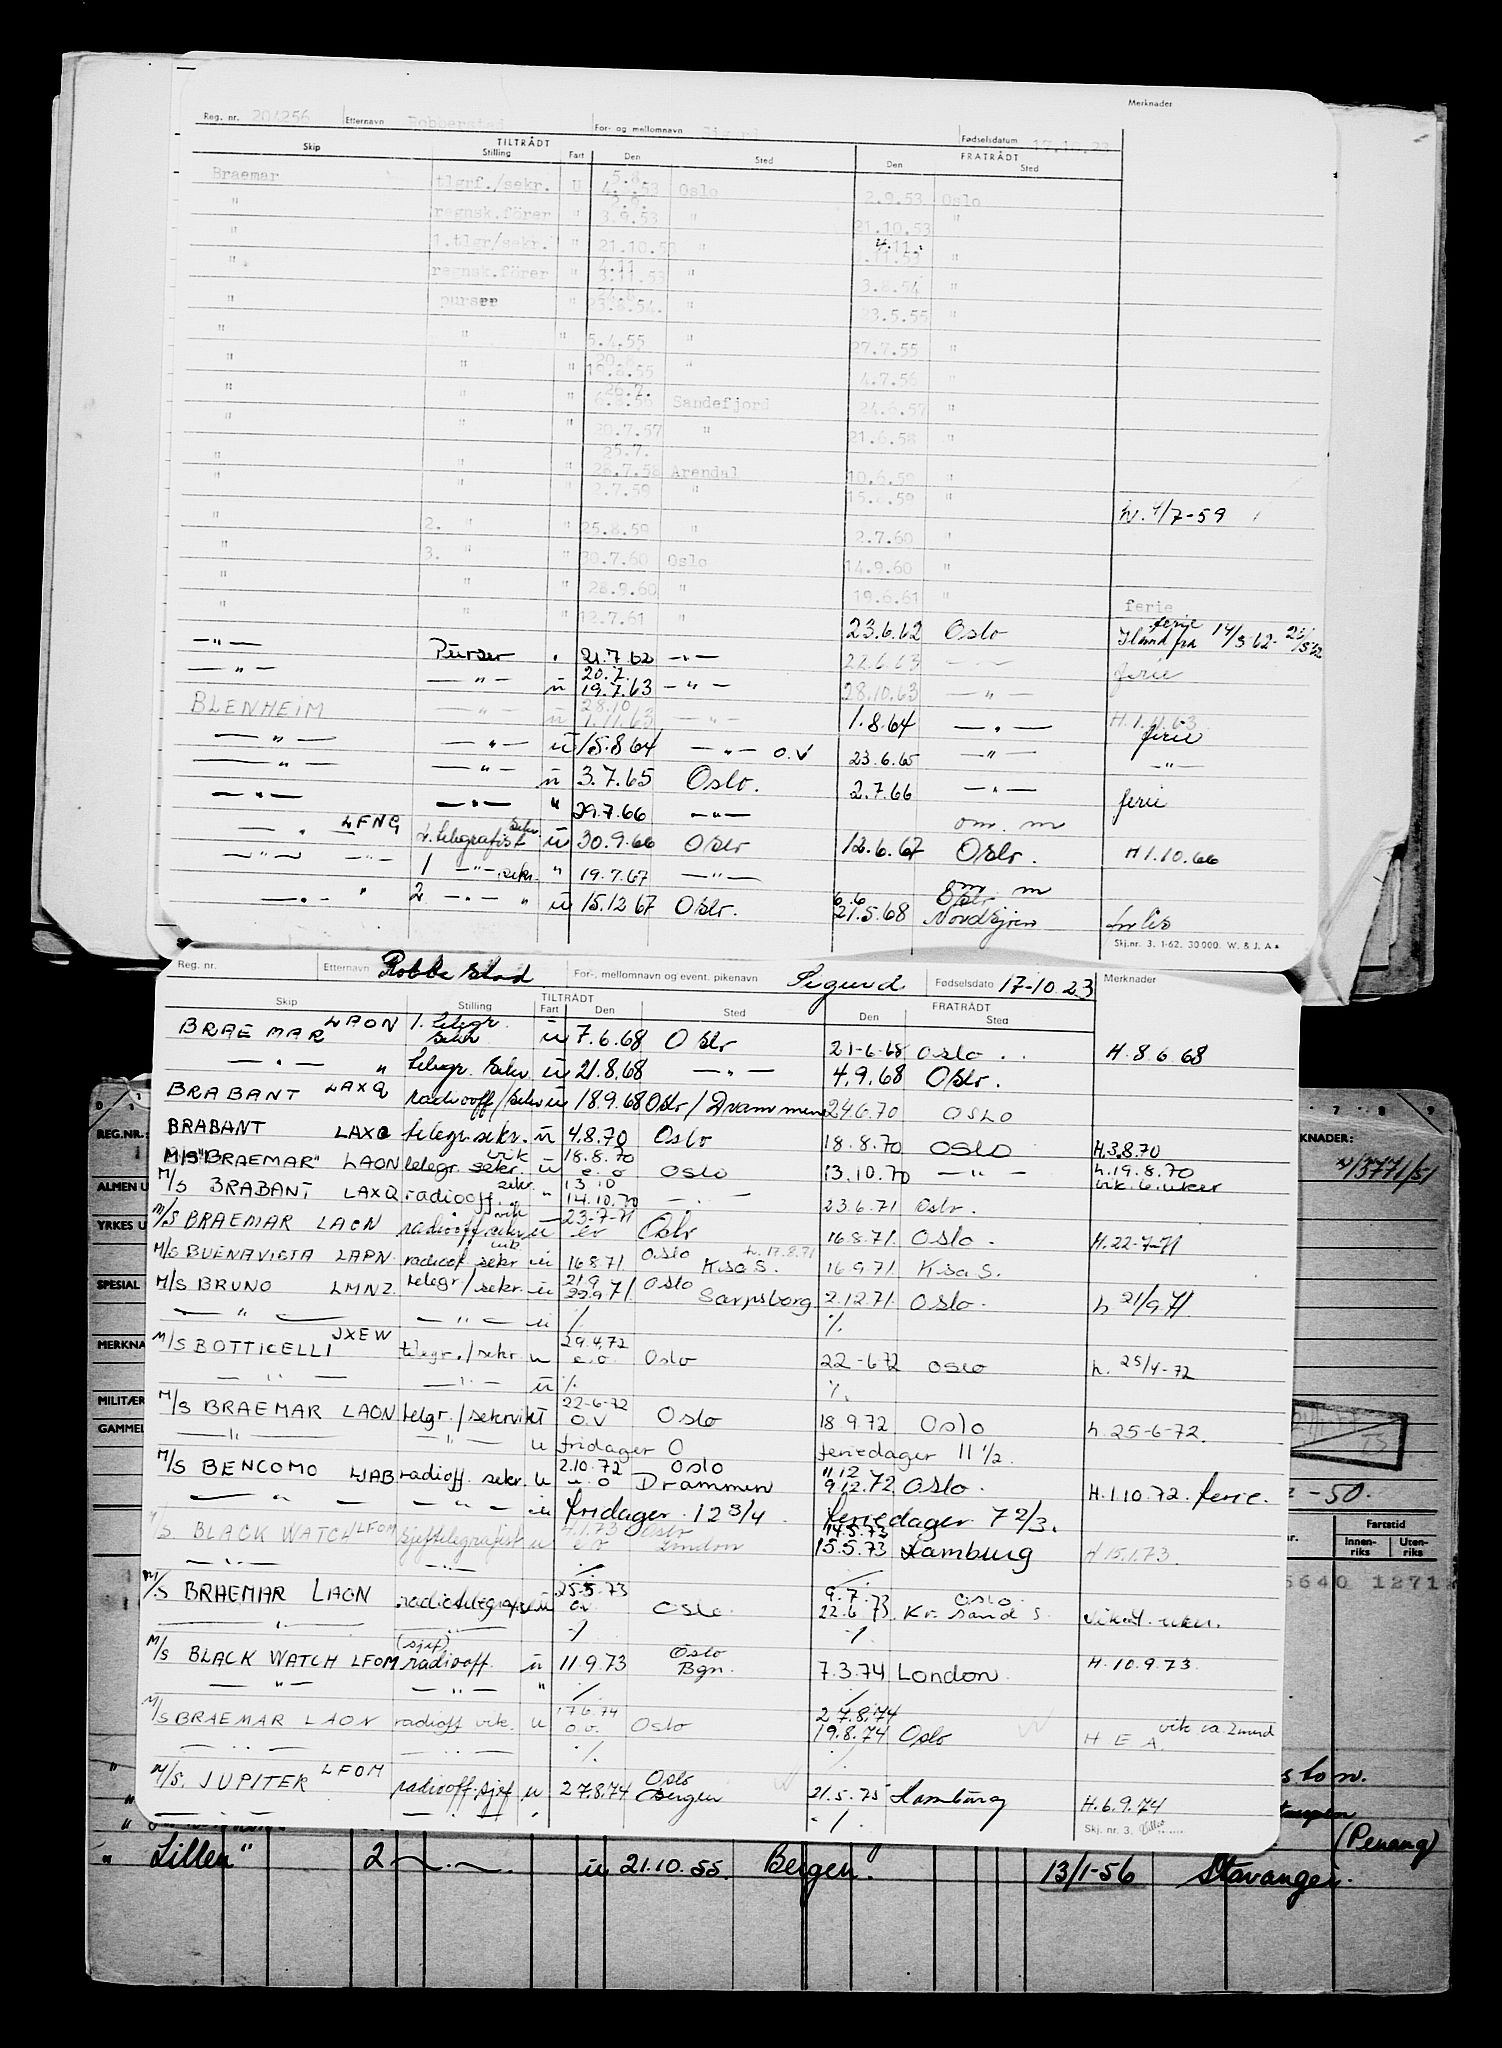 Merknader
Reg. nr. 201256 Etternavn Robberstad For- og mellomnavn Sigurd Fødselsdatum 17.10.23
TILTRÅDT FRATRÅDT
Skip Stilling Fart Den Sted Den Sted
Braemar tlgrf./sekr. U 5.8. 4. .53 Oslo 2.9.53 Oslo
" regnsk.förer " 3.9.53 " 21.10.53 "
" 1.tlgr/sekr. " 21.10.53 " 4.11. .11.53 "
" regnsk.förer " 4.11. 3.11.53 " 3.8.54 "
" purser " 23.8.54. " 23.5.55 "
" " " 5.4.55 " 27.7.55 "
" " " 20.8. 19.8.55 " 4.7.56 "
" " " 26.7. 6.8.56 Sandefjord 24.6.57 "
" " " 20.7.57 " 21.6.58 "
" " " 25.7. 28.7.58 Arendal 10.6.59 "
" " " 2.7.59 " 15. .59 " h. 4/7-59
" 2. " " 25.8.59 2.7.60 "
" 3. " " 30.7.60 Oslo 14.9.60 "
" " " 28.9.60 " 19.6.61 " ferie
" " " 12.7.61 " 23.6.62 Oslo ferie Iland fra 14/5 62-
—"— Purser " 21.7.62 —"— 22.6.63 —"— ferie
—"— —"— u 20.7. 19.7.63 —"— 28.10.63 —"—
BLENHEIM —"— u 28.10 1.11.63 —"— 1.8.64 —"— H.1.11.63 ferie
—"— —"— u 15.8 64 —"— o.v 23.6.65 —"— —"—
—"— —"— u 3.7.65 Oslo. 2.7.66 —"— ferie
—"— —"— " 29.7.66 —"— om. m
—"— LFNG 2. telegrafist sekr. u 30.9.66 Oslo 12.6.67 Oslo. H 1.10.66
—"— —"— 1 —"— sekr. " 19.7.67 —"— om. m
—"— " 2 —"— " u 15.12 67 Oslo. 6.6 21.5.68 Oslo Nordsjøen
Skj.nr. 3. 1-62. 30 000. W. & J. A
Reg. nr. Etternavn Robbestad For-, mellomnavn og event. pikenavn Sigurd. Fødselsdato 17-10.23 Merknader
TILTRÅDT FRATRÅDT
Skip Stilling Fart Den Sted Den Sted
BRAEMAR LAON 1. telegr. sekr u 7.6.68 Oslo 21-6-68 Oslo . . H.8.6.68
—"— " telegr. sekr. u 21.8.68 —"— 4.9.68 Oslo.
BRABANT LAXQ radiooff/sekr u 18.9.68 Oslo/Drammen 24.6.70 OSLO
BRABANT LAXQ telegr.sekr. u 4.8.70 Oslo 18.8.70 OSLO H.3.8.70
M/S "BRAEMAR" LAON telegr. sekr. vik u 18.8.70 e.o Oslo 13.10.70 —"— h.19.8.70 vik. 6 uker
M/S BRABANT LAXQ radiooff. sekr. " 13 10 14.10.70 —"— 23.6.71 Oslo.
M/S BRAEMAR LAON radiooff sekr vik u 23-7-71 ev Oslo 16.8.71. Oslo. H.22-7-71
M/S BUENAVISTA LAPN. radioof sekr vik u 16871 Oslo K.sa S. h. 17.8.71 16.9.71. K.sa S.
M/S BRUNO LMNZ. telegr/sekr. u 21.9 22.9 71 Oslo Sarpsborg 2.12.71. Oslo. h 21/9 71
—"— —"— u % %
M/S BOTTICELLI JXEW telegr./sekr u 29.4.72 e.o. Oslo 22-6-72 OSLO h. 25/4-72
—"— —"— u % %
M/S BRAEMAR LAON telgr./sekrvikt 22-6-72 O.V Oslo 18.9.72 Oslo h. 25-6-72.
—"— —"— u fridager 0 feriedager 11 1/2
M/S BENCOMO LJAB radioff. sekr. u 2.10.72 u. o Oslo Drammen 11 12 9.12.72 Oslo. H.1.10.72. ferie.
—"— —"— u Fridager 12 3/4 feriedager 7 2/3.
M/S BLACK WATCH LFOM Sjeftelegrafist u 4.1.73 e o Oslo London 14.5.73 15.5.73 Hamburg H 15.1.73.
—"— —"— % %
M/S BRAEMAR LAON radiotelegrafist u 25.5.73 ov Oslo. 9.7.73 22.6 73 Oslo. Kr. sand S. vik.
—"— —"— % %
M/S BLACK WATCH LFOM (sjef) radiooff. u 11.9.73 Oslo Bgn. 7.3.74 London H.10.9.73.
—"— —"— " % %
M/S BRAEMAR LAON radioff vik. u 17.6.74 o.v. Oslo 27.8.74 19.8.74 Oslo H E A vik ca. 2 mnd
—"— —"— % %
M/S. JUPITER LFOM radiooff.sjef u 27.8.74 Oslo Bergen 21.5.75 Hamburg H.6.9.74
—"— —"— " %
Skj. nr. 3.
REG.NR.: KNADER:
7 8 9
13771/51
ALMEN U
YRKES U
SPESIAL
MERKNA
MILITÆR
GAMMEL
-50.
Fartstid
Innen-riks Uten-riks
5640 1271
(Penang)
" Lillen" 2 —"— u 21.10.55. Bergen. 13/1-56 Stavanger.